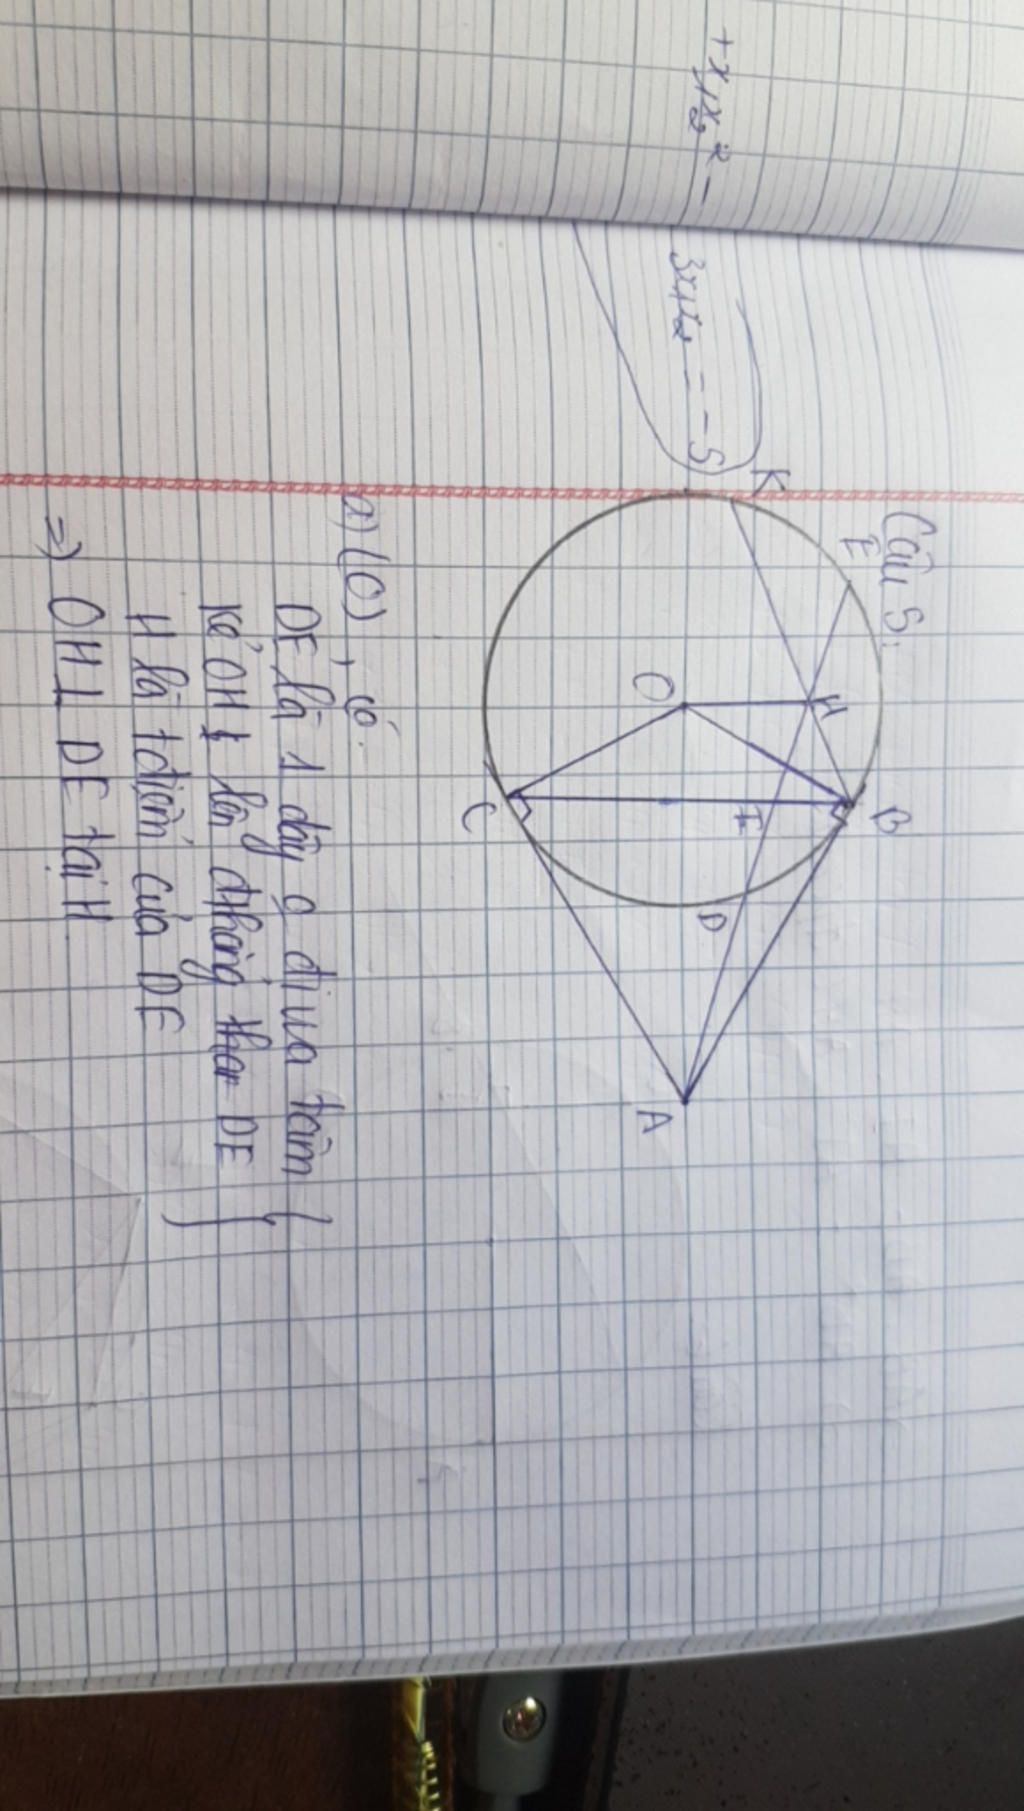 +x₁x₂² - 3x₁x₂ = -5
Câu 5:
K
E
H
B
O
I
C
D
A
a) (O), có:
DE là 1 dây o đi ua tâm
Kẻ OH lên đthẳng DE
H là tđiểm của DE
=> OH⊥ DE tại H